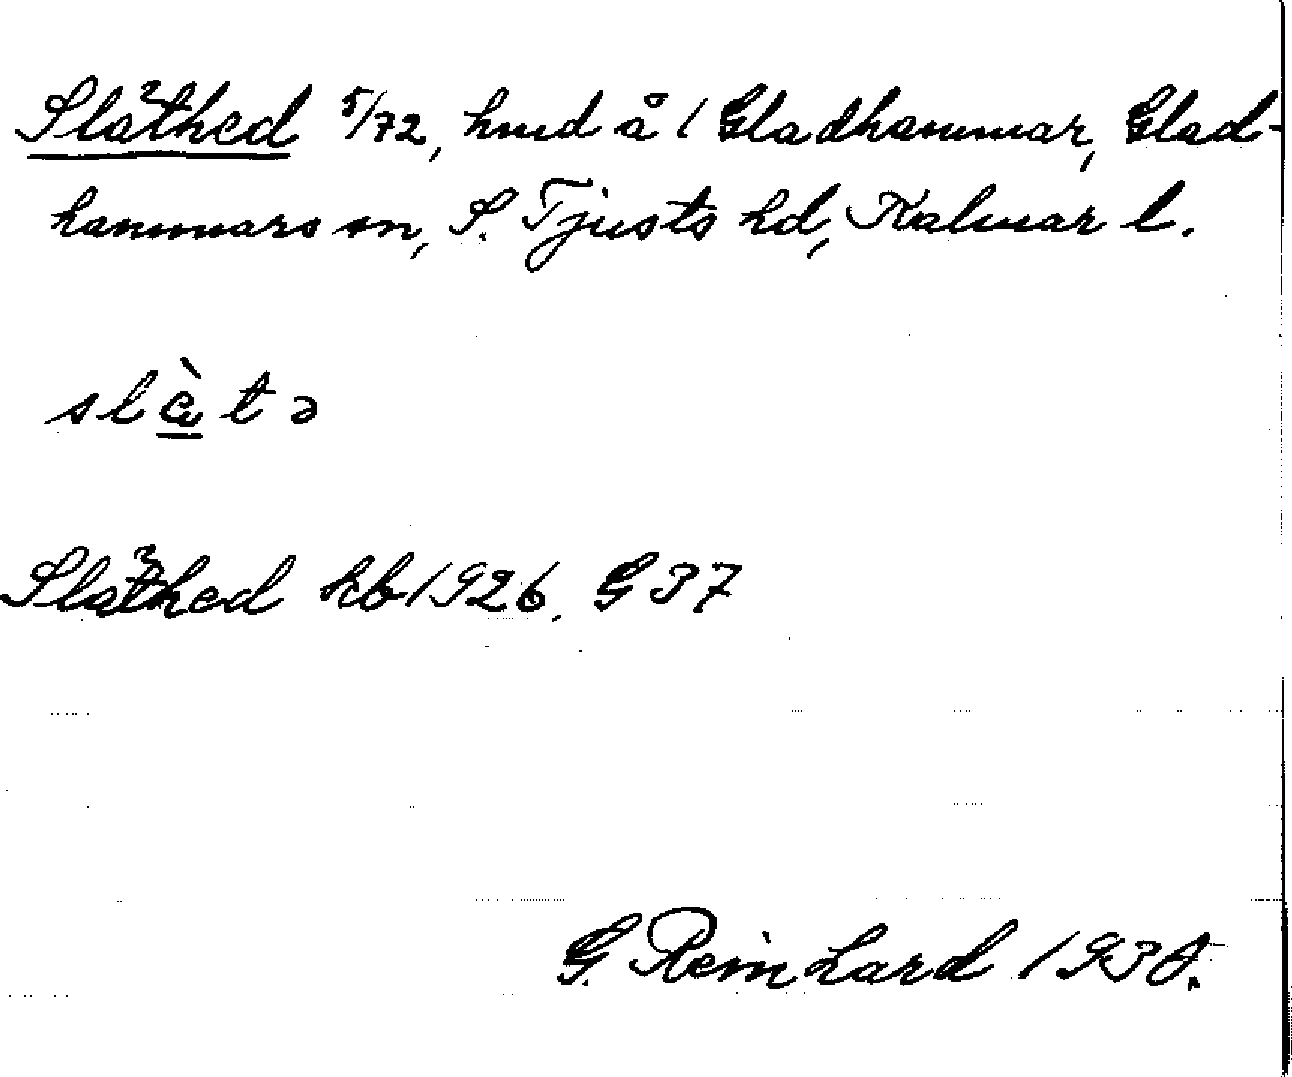 Släthed 5/72, hmd å 1 Gladhammar, Glad-
hammars sn, S. Tjusts hd, Kalmar l.
slæ̀tə
Släthed kb 1926. G 37
G. Reinhard 193